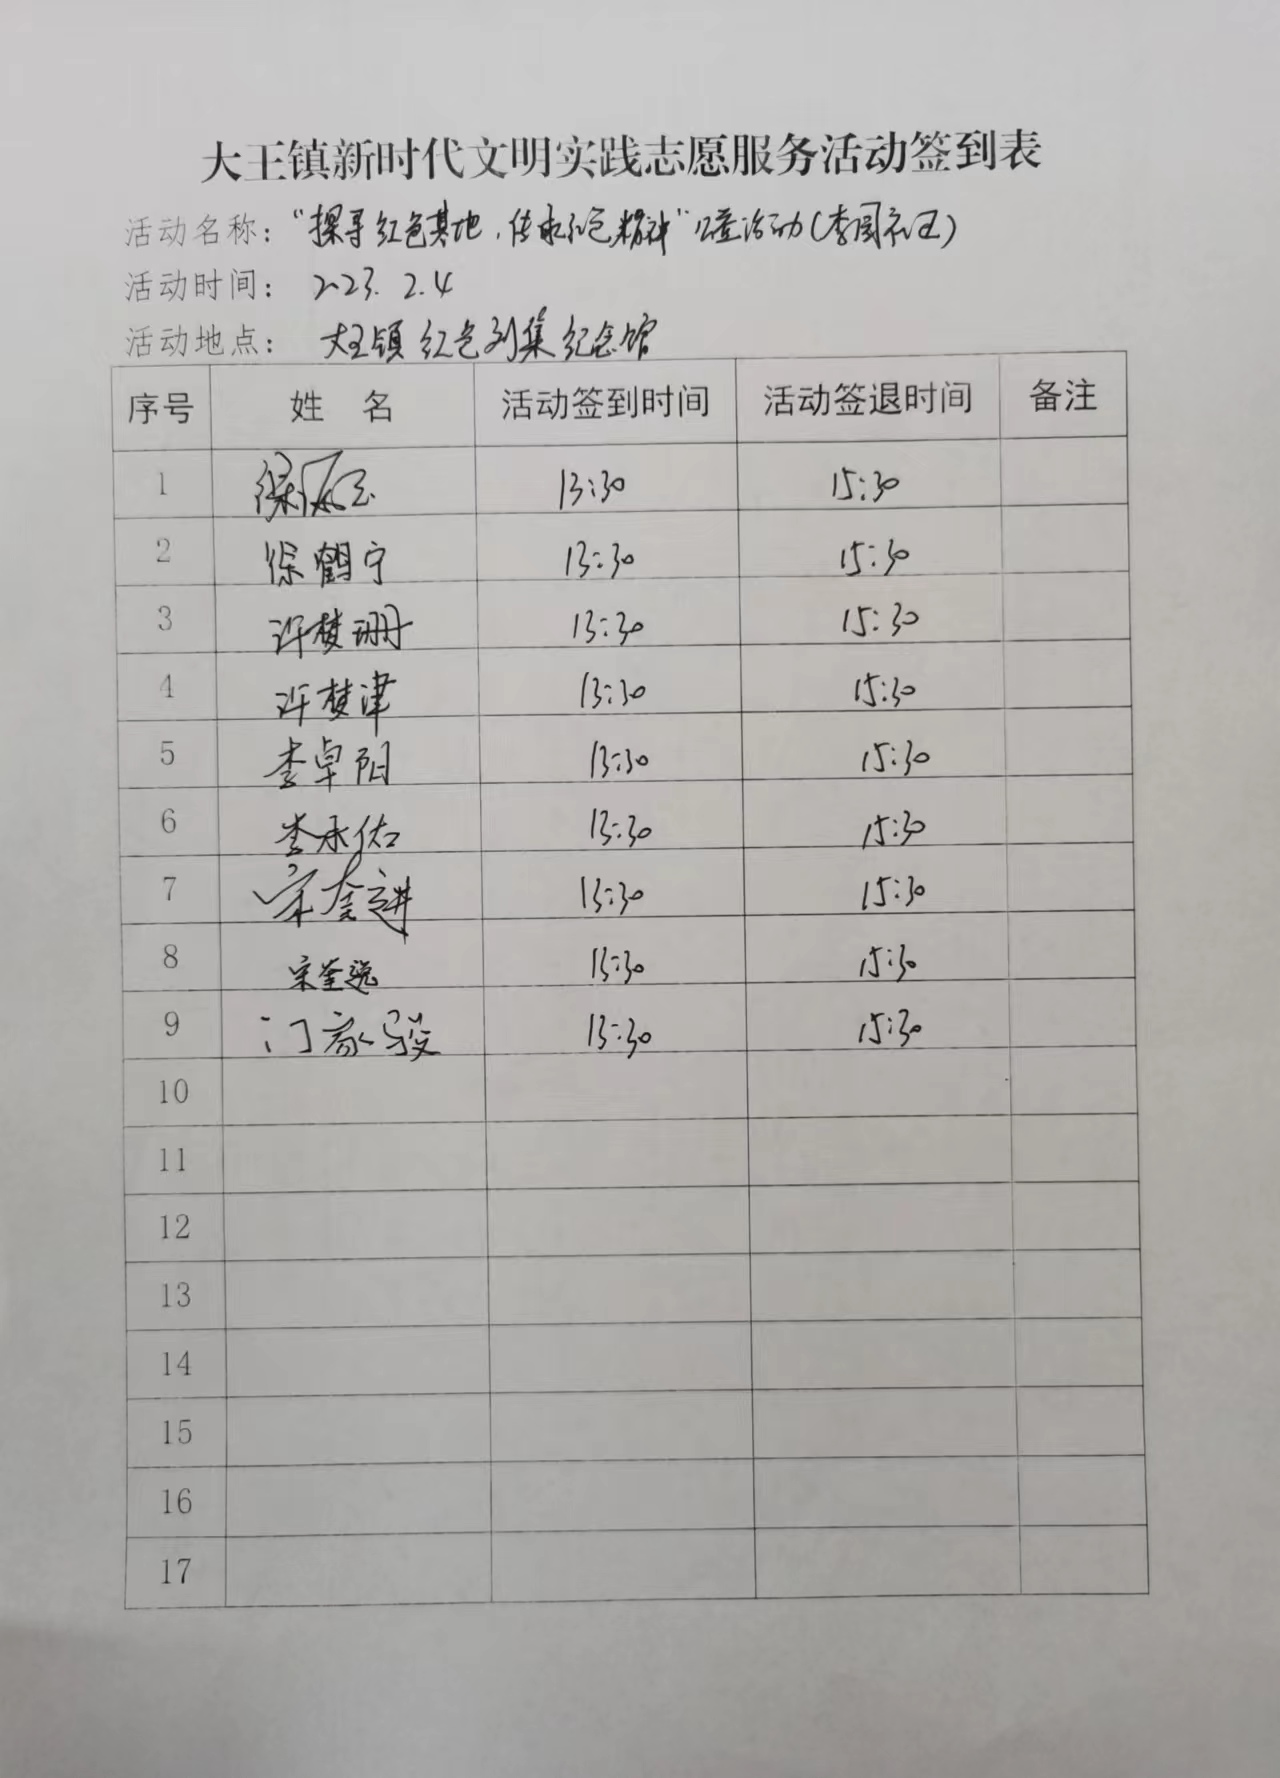 大王镇新时代文明实践志愿服务活动签到表
活动名称："探寻红色基地，传承红色精神"活动(李园社区)
活动时间：2023.2.4
活动地点：大王镇红色刘集纪念馆
序号 姓名 活动签到时间 活动签退时间 备注
1 13:30 15:30
2 徐鹤宁 13:30 15:30
3 许梦珊 13:30 15:30
4 许梦津 13:30 15:30
5 李卓阳 13:30 15:30
6 李承佑 13:30 15:30
7 宋奎进 13:30 15:30
8 宋奎 13:30 15:30
9 门家骏 13:30 15:30
10
11
12
13
14
15
16
17